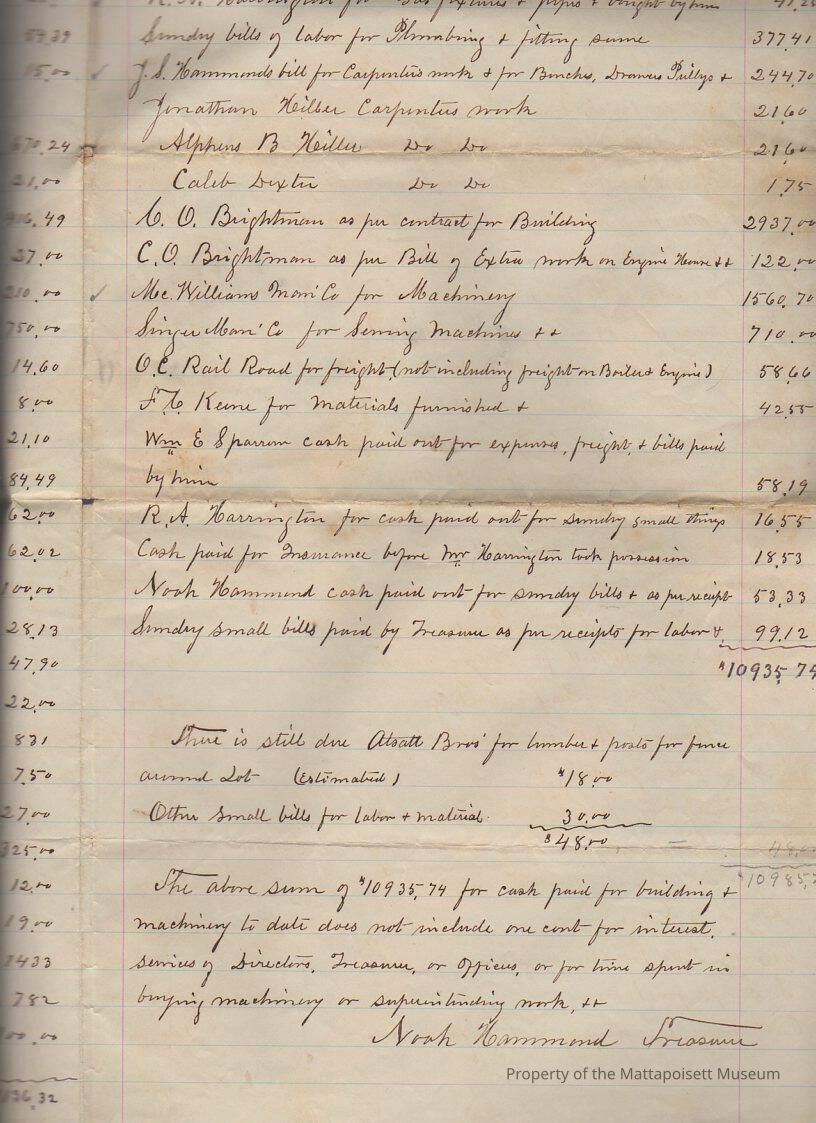 R. A. Harrington for Gas fixtures & pipes & bought by him 41.25
54.39 Sundry bills of labor for Plumbing & fitting same 377.41
15.00 ✓ J. S. Hammonds bill for Carpenters work & for Benches, Drawers Pullys & 244.70
Jonathan Hiller Carpenters work 21.60
670.24 Alpheus B Hiller Do Do 21.60
21.00 Caleb Dexter Do Do 1.75
.49 C. O. Brightman as per contract for Building 2937.00
27.00 C. O. Brightman as per Bill of Extra work on Engine House && 122.00
210.00 ✓ Mc. Williams Man' Co for Machinery 1560.70
750.00 Singer Man' Co for Sewing Machines & & 710.00
14.60 O.C. Rail Road for freight (not including freight on Boiler & Engine) 58.66
8.00 F. C. Keene for materials furnished & 42.55
21.10 Wm E Sparrow cash paid out for expenses, freight, & bills paid
84.49 by him 58.19
62.00 R. A. Harrington for cash paid out for sundry small things 16.55
62.02 Cash paid for Insurance before Mr Harrington took possession 18.53
100.00 Noah Hammond cash paid out for sundry bills & as per receipt 53.33
28.13 Sundry small bills paid by Treasurer as per receipts for labor & 99.12
47.90 $10935.74
22.00
831 There is still due Atsatt Bros' for lumber & posts for fence
7.50 around Lot (Estimated) $18.00
27.00 Other small bills for labor & material 30.00
325.00 $48.00 = 48.00
12.00 The above sum of $10935.74 for cash paid for building & $10985.7
19.00 machinery to date does not include one cent for interest,
1433 services of Directors, Treasurer, or Officers, or for time spent in
782 buying machinery or superintending work, &&
00.00 Noah Hammond Treasurer
136.32
Property of the Mattapoisett Museum